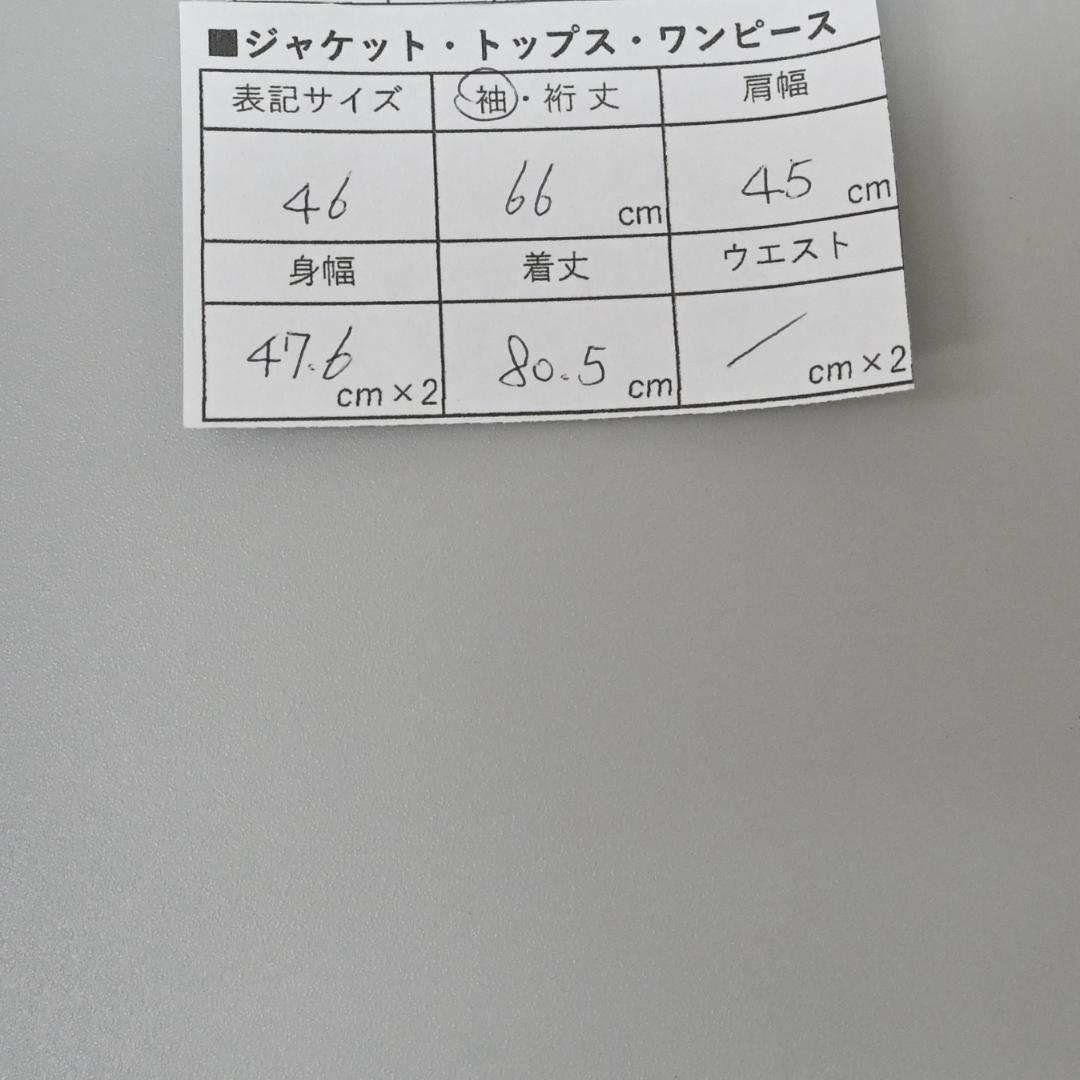 ■ジャケット・トップス・ワンピース
表記サイズ 袖・裄丈 肩幅
46 66 cm 45 cm
身幅 着丈 ウエスト
47.6 cm×2 80.5 cm / cm×2